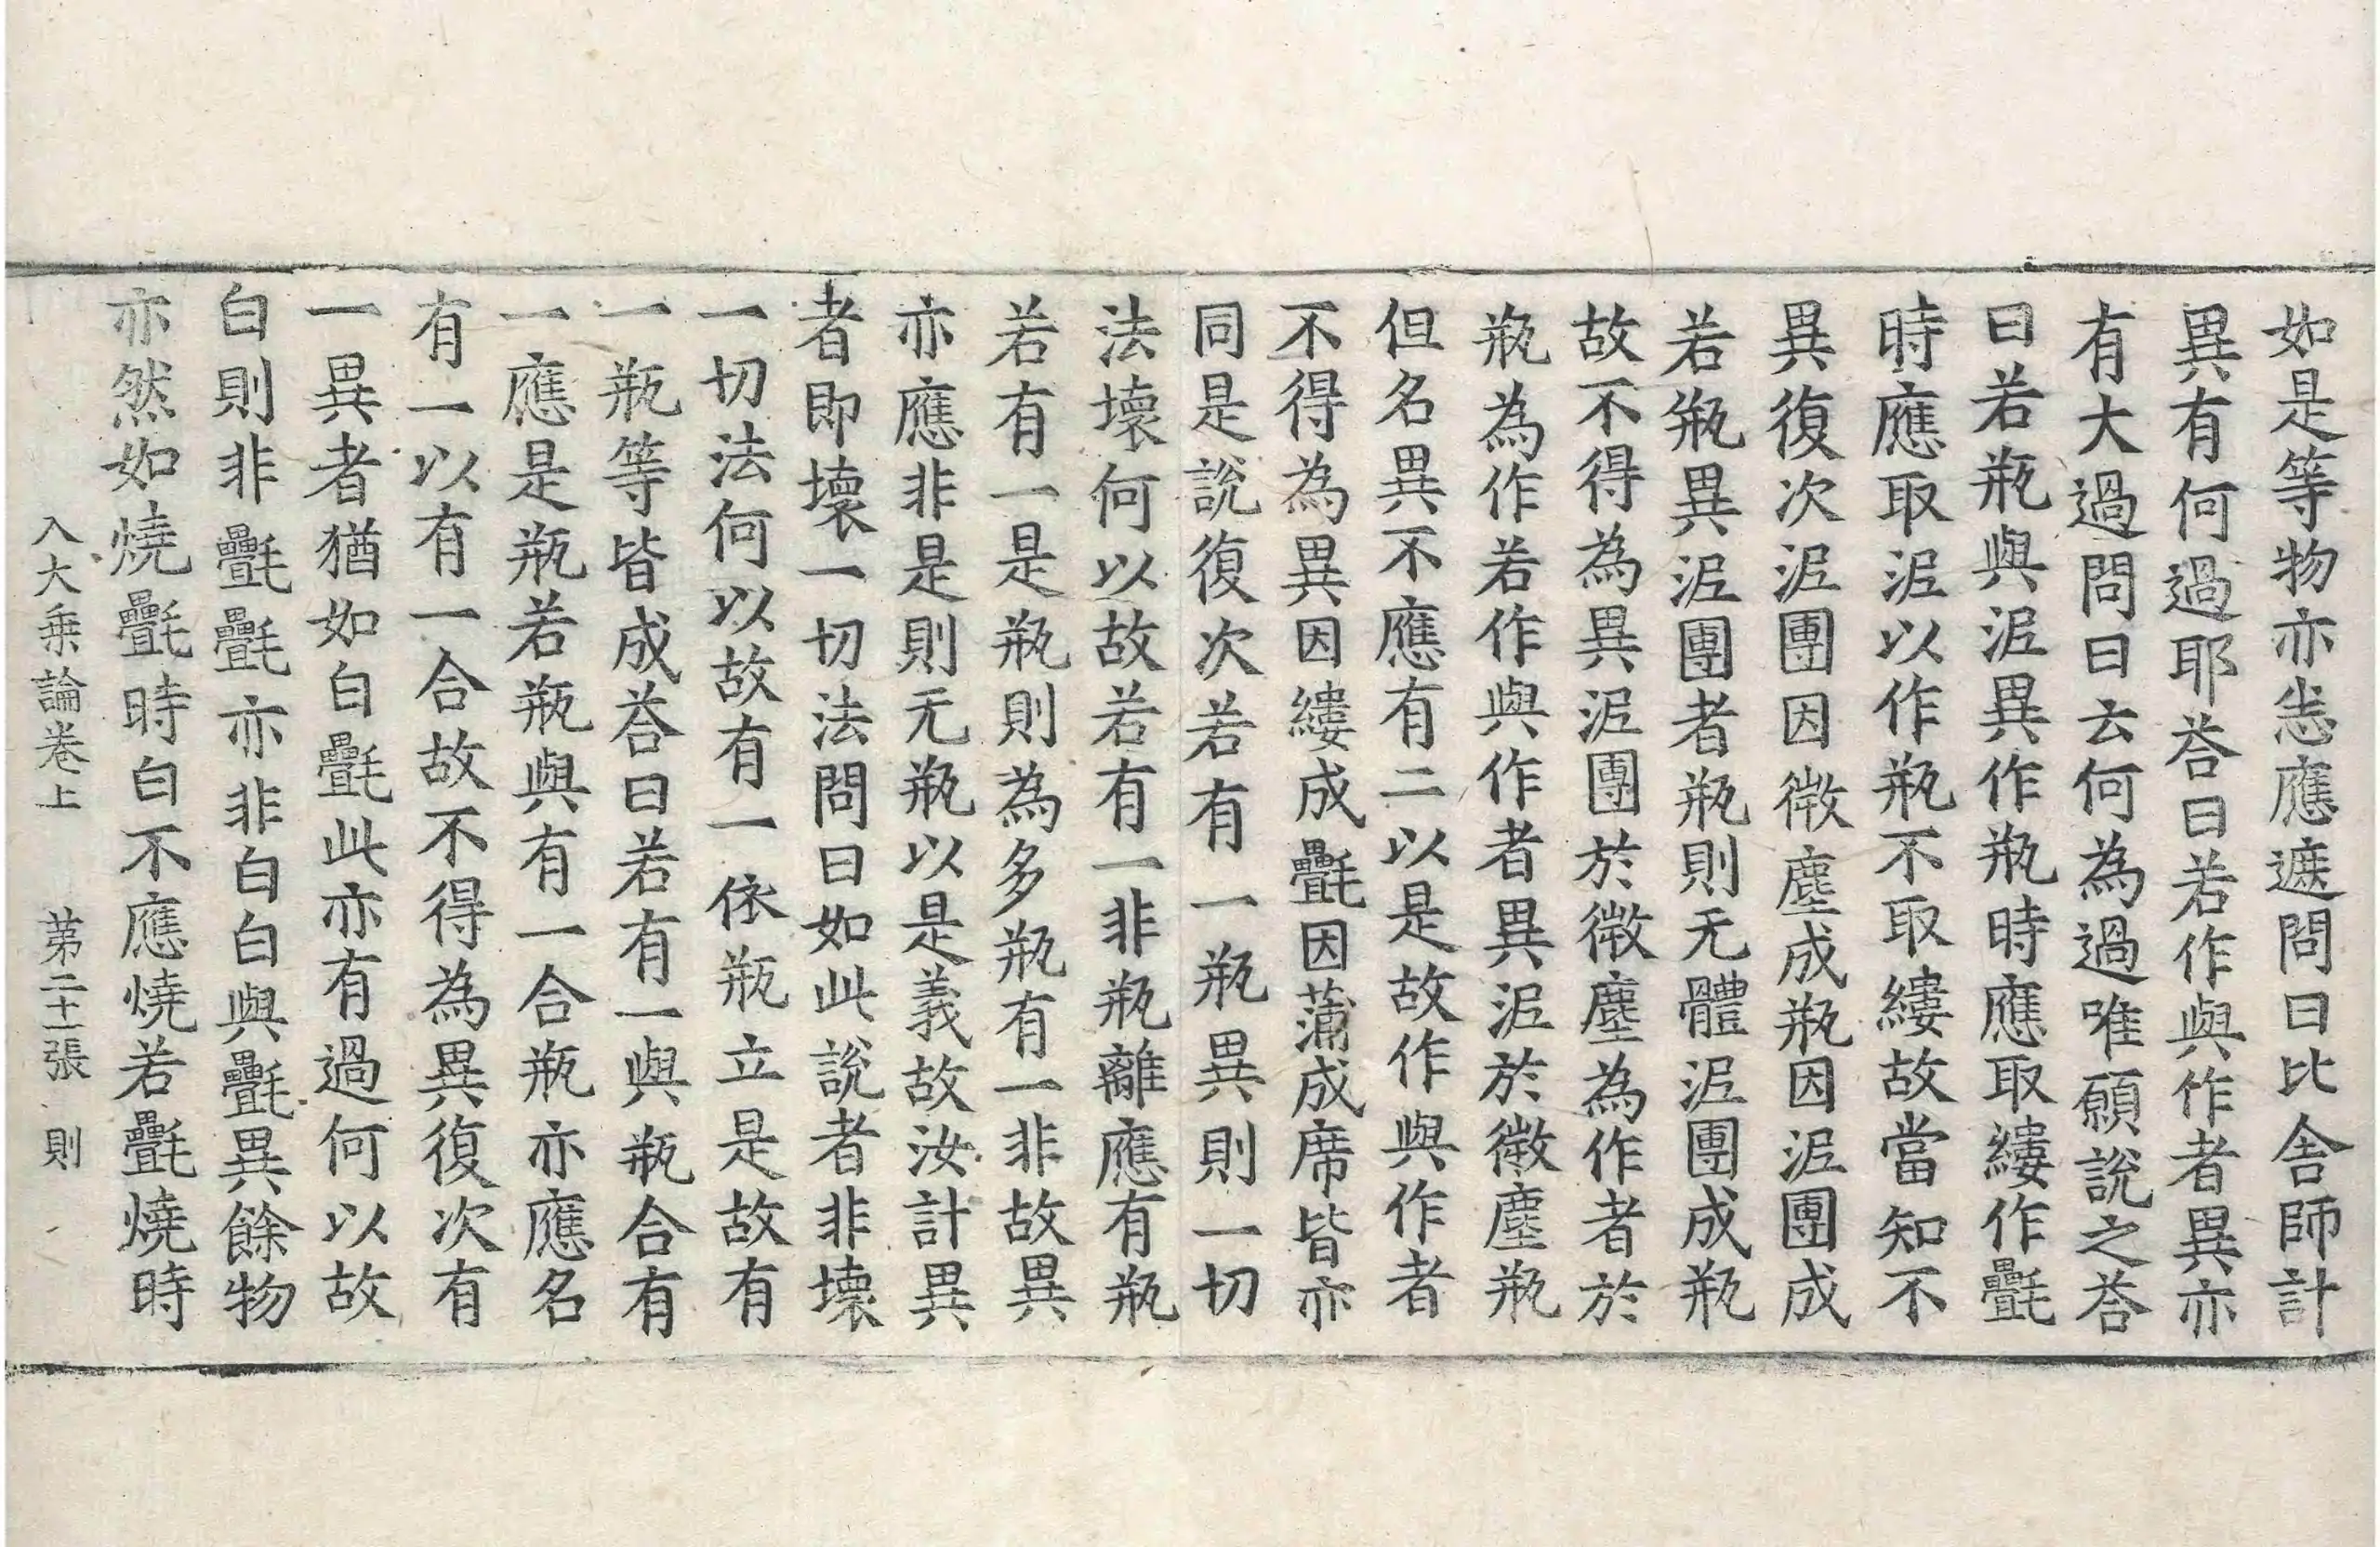 如是等物亦恙應遮問曰比舍師計
異有何過耶荅曰若作與作者異亦
有大過問曰云何為過唯願說之荅
曰若瓶與泥異作瓶時應取縷作㲲
時應取泥以作瓶不取縷故當知不
異復次泥團因微塵成瓶因泥團成
若瓶異泥團者瓶則无體泥團成瓶
故不得為異泥團於微塵為作者於
瓶為作若作與作者異泥於微塵瓶
但名異不應有二以是故作與作者
不得為異因縷成㲲因蒲成席皆亦
同是說復次若有一瓶異則一切
法壞何以故若有一非瓶離應有瓶
若有一是瓶則為多瓶有一非故異
亦應非是則无瓶以是義故汝計異
者即壞一切法問曰如此說者非壞
一切法何以故有一依瓶立是故有
一瓶等皆成荅曰若有一與瓶合有
一應是瓶若瓶與有一合瓶亦應名
有一以有一合故不得為異復次有
一異者猶如白㲲此亦有過何以故
白則非㲲㲲亦非白白與㲲異餘物
亦然如燒㲲時白不應燒若㲲燒時
入大乗論卷上 苐二十一張 則